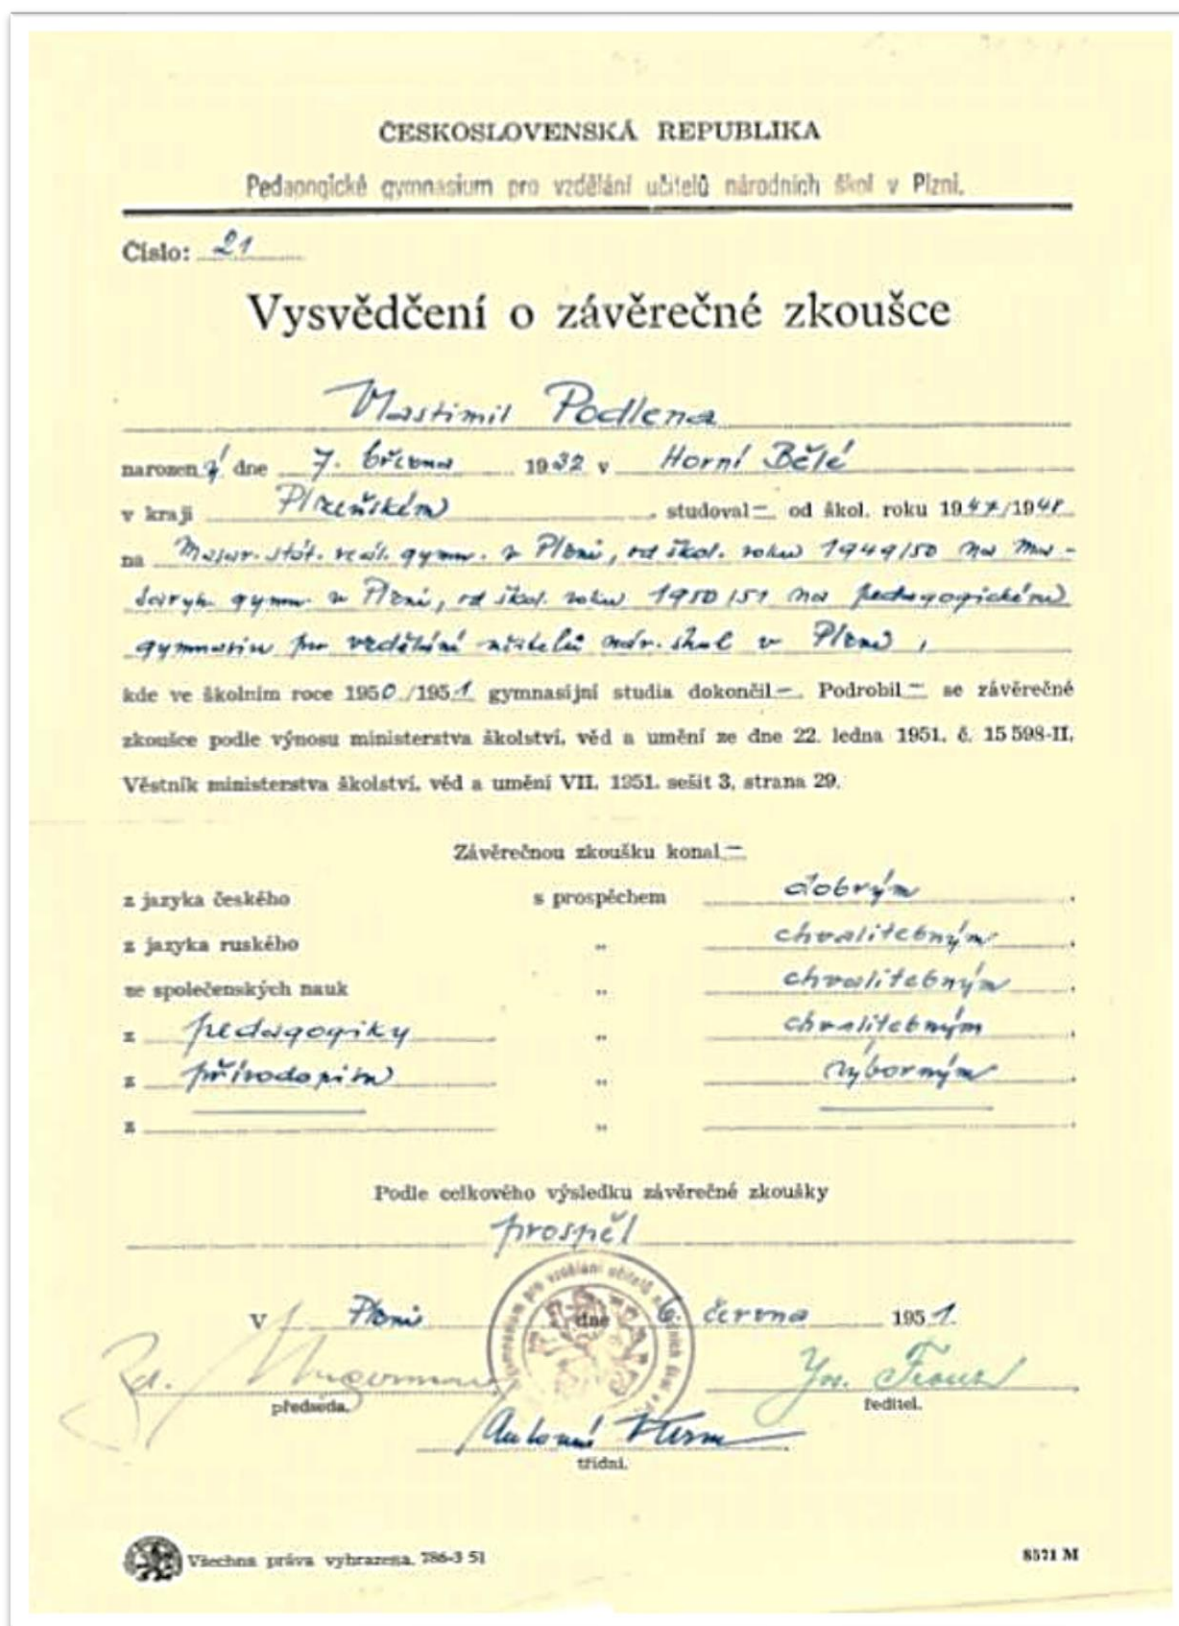 ČESKOSLOVENSKÁ REPUBLIKA
Pedagogické gymnasium pro vzdělání učitelů národních škol v Plzni.
Číslo: 21
Vysvědčení o závěrečné zkoušce
Vlastimil Podlena
narozen ý dne 7. března 1932 v Horní Bělé
v kraji Plzeňském, studoval – od škol. roku 1947/1948
na Masar. stát. reál. gymn. v Plzni, od škol. roku 1949/50 na Ma-
saryk. gymn. v Plzni, od škol. roku 1950/51 na pedagogickém
gymnasiu pro vzdělání učitelů nár. škol v Plzni,
kde ve školním roce 1950/1951 gymnasijní studia dokončil –. Podrobil – se závěrečné
zkoušce podle výnosu ministerstva školství, věd a umění ze dne 22. ledna 1951, č. 15 598-II,
Věstník ministerstva školství, věd a umění VII, 1951, sešit 3, strana 29.
Závěrečnou zkoušku konal –
z jazyka českého s prospěchem dobrým,
z jazyka ruského „ chvalitebným,
ze společenských nauk „ chvalitebným,
z pedagogiky „ chvalitebným
z přírodopisu „ výborným
z „
Podle celkového výsledku závěrečné zkoušky
prospěl
V Plzni dne 6. června 1951.
předseda. ředitel.
Antonín
třídní.
Všechna práva vyhrazena. 786-3 51 8571 M